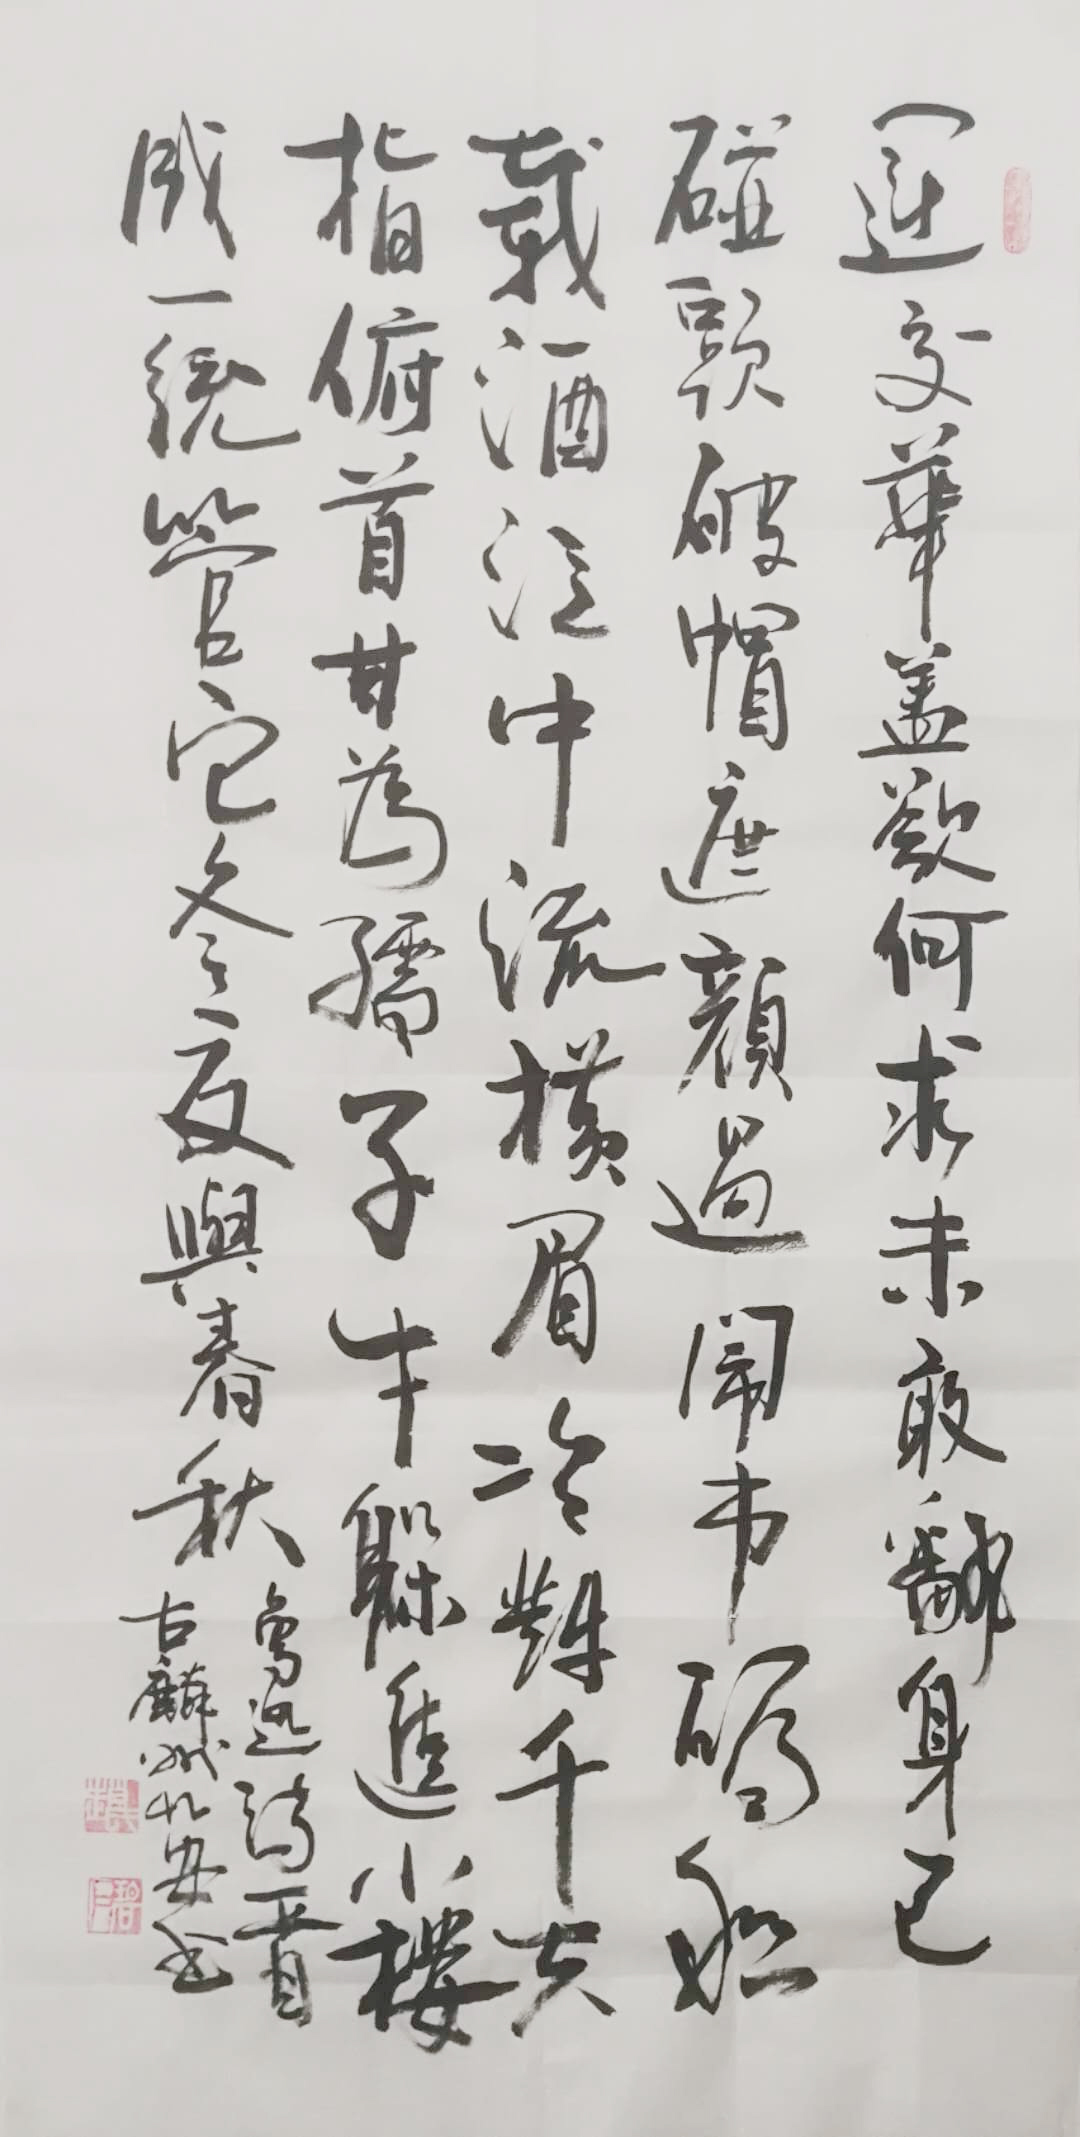 運交華蓋欲何求未敢翻身已
碰頭破帽遮顏過鬧市碼船
載酒泛中流橫眉冷對千夫
指俯首甘为孺子牛躲進小樓
成一統管它冬夏與春秋
魯迅詩一首
古麟州
書